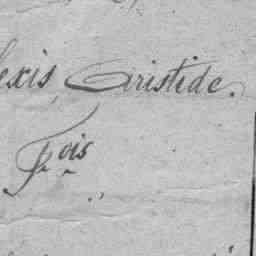 lexis Aristide.
Fois